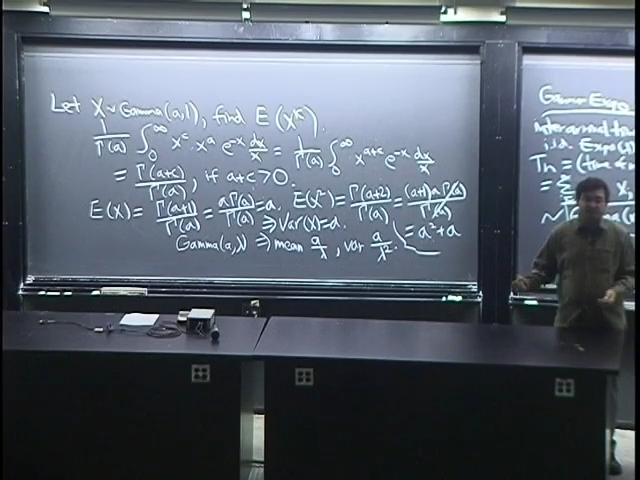 Let X ~ Gamma(a,1), find E(X^c).
1/Γ(a) ∫_0^∞ x^c · x^a e^{-x} dx/x = 1/Γ(a) ∫_0^∞ x^{a+c} e^{-x} dx/x
= Γ(a+c)/Γ(a), if a+c>0.
E(X) = Γ(a+1)/Γ(a) = aΓ(a)/Γ(a) = a. E(X²) = Γ(a+2)/Γ(a) = (a+1)aΓ(a)/Γ(a)
⇒ Var(X)=a. = a²+a
Gamma(a,λ) ⇒ mean a/λ, var a/λ².
Gamma-Expo
interarrival
i.i.d. Expo(
Tn = (time of
= Σ